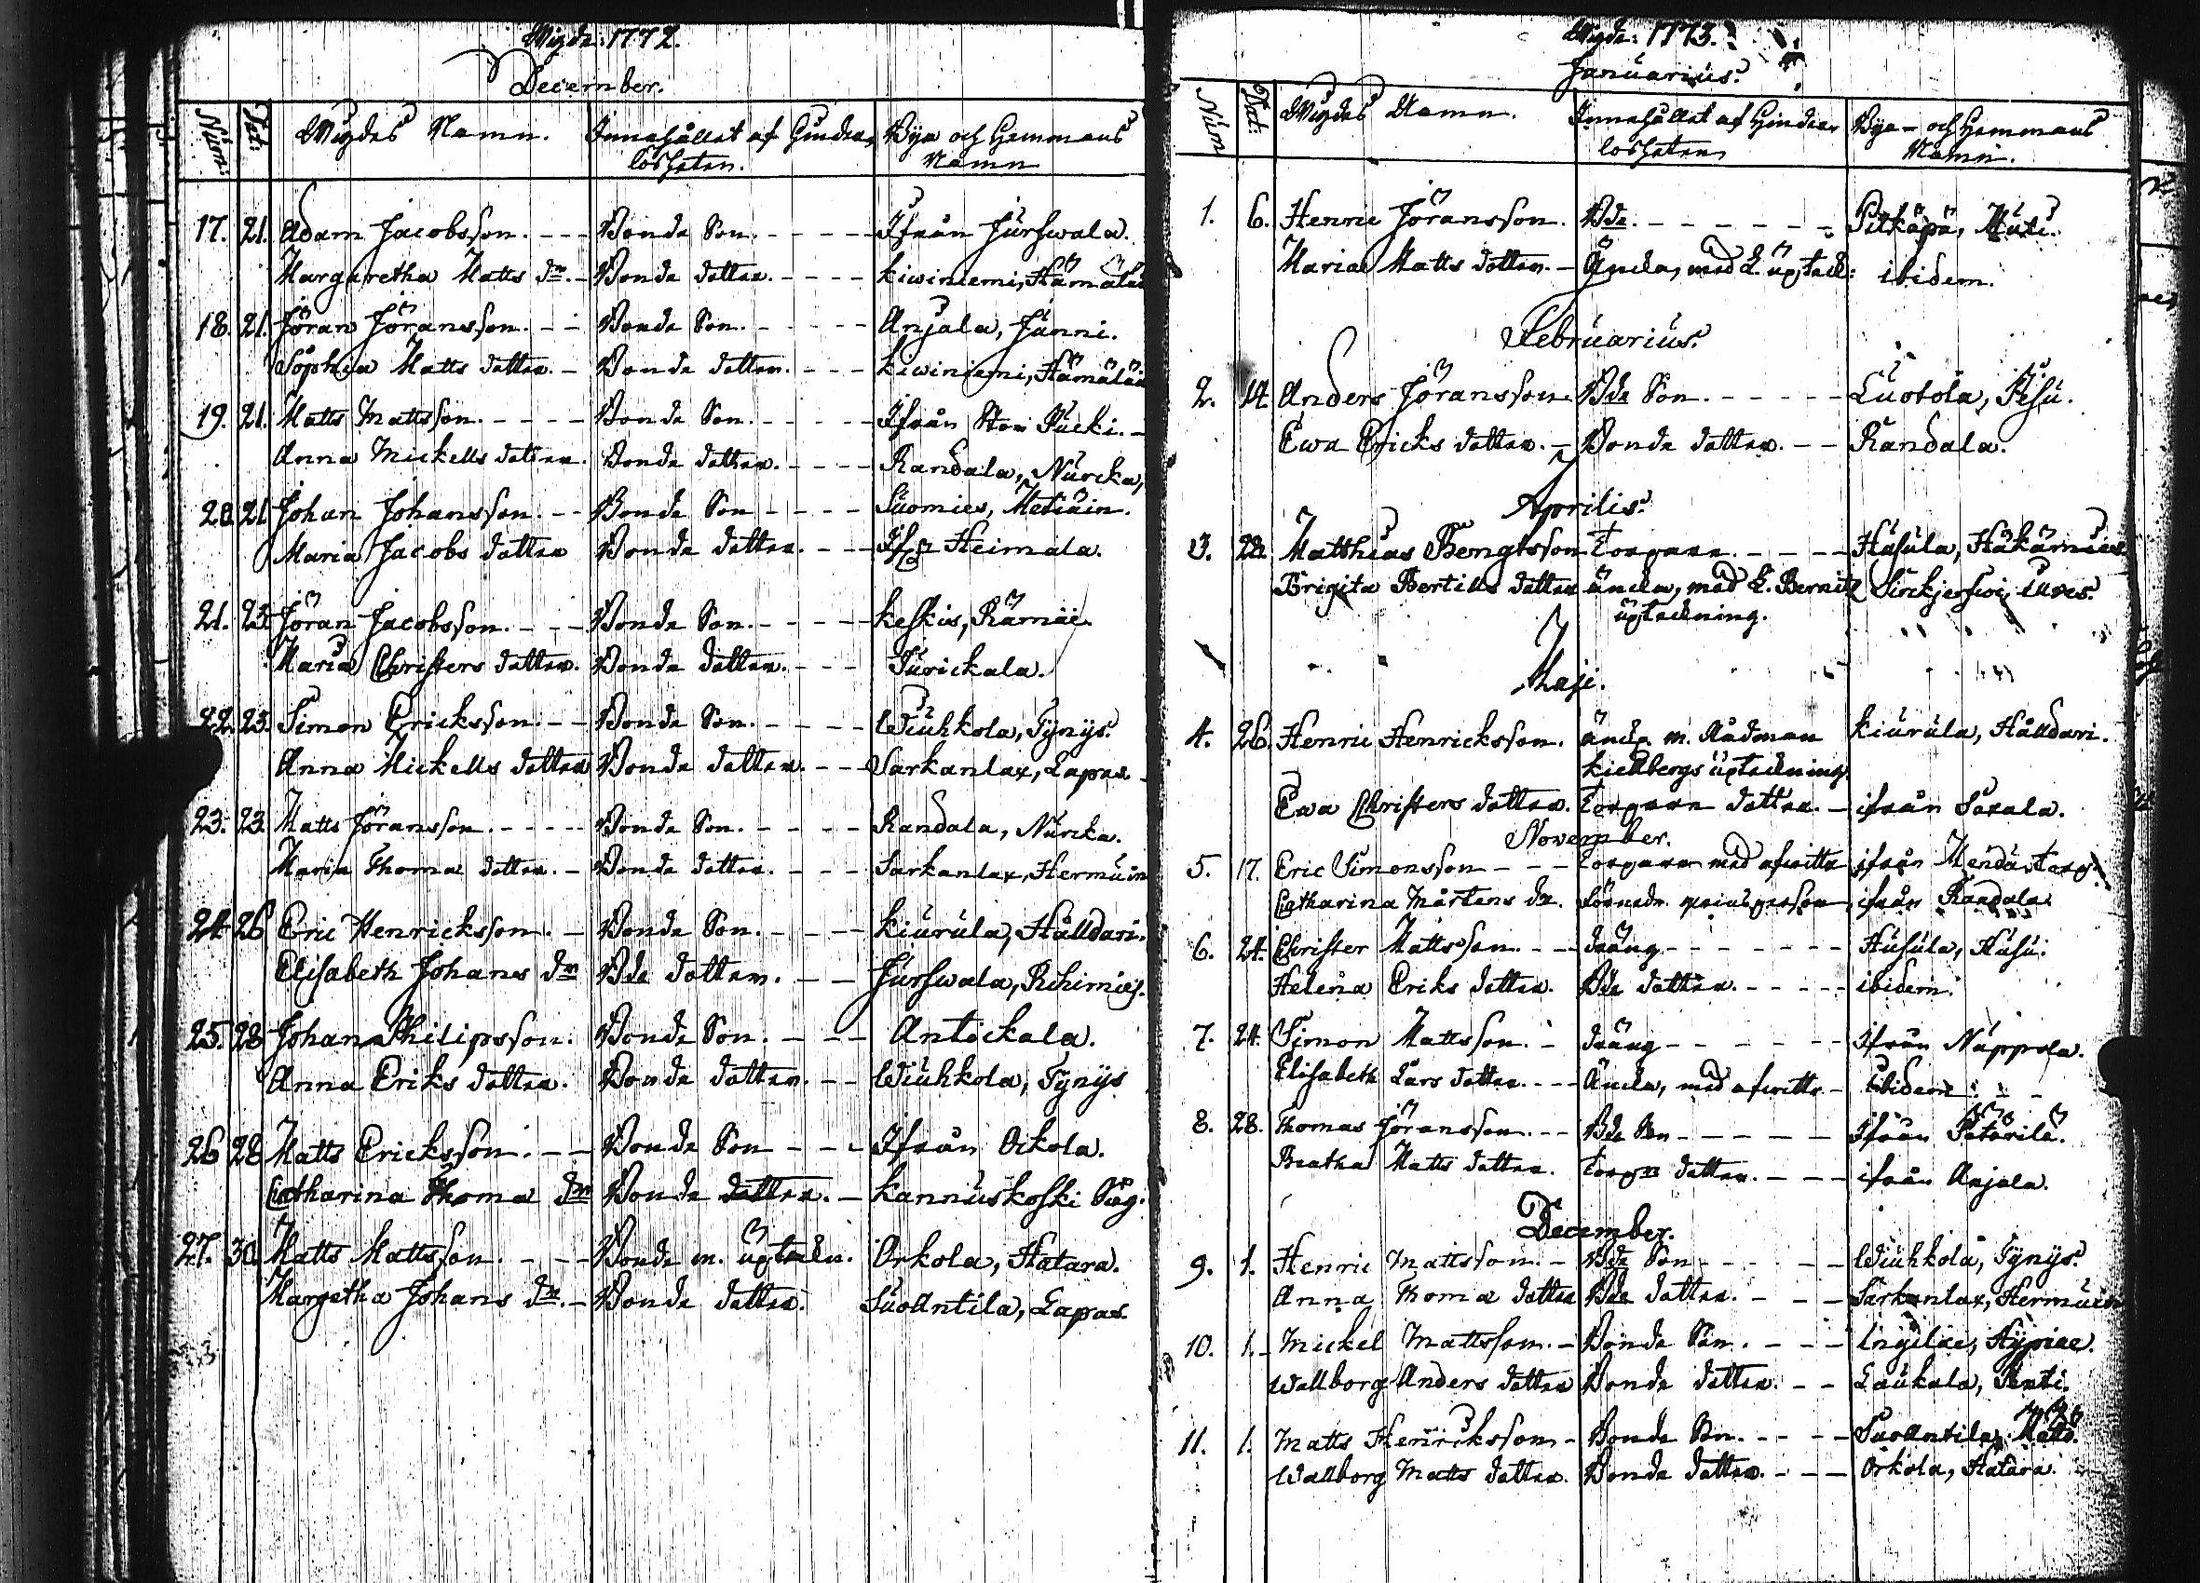 Wigde: 1772.
December.
Num: Dat: Wigdes Namn. Innehållet af Hinders Bya och Hemmans
lösheten. Namn
17. 21. Adam Jacobsson. Bonde Son. Ifrån Jurfwala.
Margaretha Matts dr. Bonde dotter. Kiwiniemi, Hämäläi
18. 21. Jöran Jöransson. Bonde Son. Anjala, Junni.
Sophia Matts dotter. Bonde dotter. Kiwiniemi, Hämäläi
19. 21. Matts Mattsson. Bonde Son. Ifrån Stor Pucki.
Anna Mickells dotter. Bonde dotter. Randala, Nurcka,
20. 21. Johan Johansson. Bonde Son Suomies,
Maria Jacobs dotter Bonde dotter. Heimala.
21. 23. Jöran Jacobsson. Bonde Son. Keskis, Rämäi.
Maria Christers dotter. Bonde dotter. Purickala.
22. 23. Simon Ericksson. Bonde Son. Wiuhkola, Tynys.
Anna Mickells dotter Bonde dotter. Sarkanlax, Lapas
23. 23. Matts Jöransson. Bonde Son. Randala, Nurcka.
Maria Thoma dotter. Bonde dotter. Sarkanlax, Hermuin
24. 26 Eric Henricksson. Bonde Son. Kiurula, Hålldari.
Elisabeth Johans dr Bde dotter. Jurfwala, Rihimies.
25. 28 Johan Philipsson. Bonde Son. Antickala.
Anna Eriks dotter. Bonde dotter. Wiuhkola, Tynys
26 28 Matts Ericksson. Bonde Son Ifrån Orkola.
Catharina Thoma dr Bonde dotter. Kannuskoski Såg.
27. 30. Matts Mattsson. Bonde m. uptekn. Orkola, Hatara.
Margetha Johans dr. Bonde dotter. SuoAntila, Lapas
Wigde: 1773.
Januarius.
Num Dat: Wigdes Namn. Innehållet af Hinders Bya- och Hemmans
lösheten Namn.
1. 6. Henric Jöransson. Bde. Pitkäpä, Muti.
Maria Matts dotter. Äncka, med L. upteck: ibidem.
Februarius.
2. 14 Anders Jöransson. Bde Son. Luotola,
Ewa Ericks dotter. Bonde dotter. Randala.
Aprilis.
3. 22. Matthias Bengtsson Torpare. Husula, Håkämies
Brigita Bertills dotter äncka, med L. Bernitz Sirckjerfwi,
upteckning.
Maji.
4. 26. Henric Henricksson. änck. m. Rådman Kiurula, Hålldari.
Kiellbergs upteckning
Ewa Christers dotter. Torpare dotter. ifrån Saxala.
November.
5. 17. Eric Simonsson Torpare med afwitt ifrån
Catharina Mårtens dr. ifrån Randala.
6. 24. Christer Mattsson. dräng Husula, Husu.
Helena Eriks dotter. Bde dotter. ibidem.
7. 24. Simon Mattsson. dräng Ifrån Nåppola.
Elisabeth Lars dotter. Äncka, med afwitt ibidem
8. 28. Thomas Jöransson. Bde Son Ifrån Pätärilä.
Beatha Matts dotter. Torpre dotter. ifrån Anjala.
December.
9. 1. Henric Mattsson. Bde Son Wiuhkola, Tynys.
Anna Thoma dotter Bde dotter. Sarkanlax, Hermuin
10. 1. Mickel Mattsson. Bonde Son. Ingilae, Hypiae.
Wallborg Anders dotter Bonde dotter. Laukala, Pentti.
11. 1. Matts Henricksson Bonde Son. SuoAntila,
Wallborg Matts dotter. Bonde dotter. Orkola, Hatara.